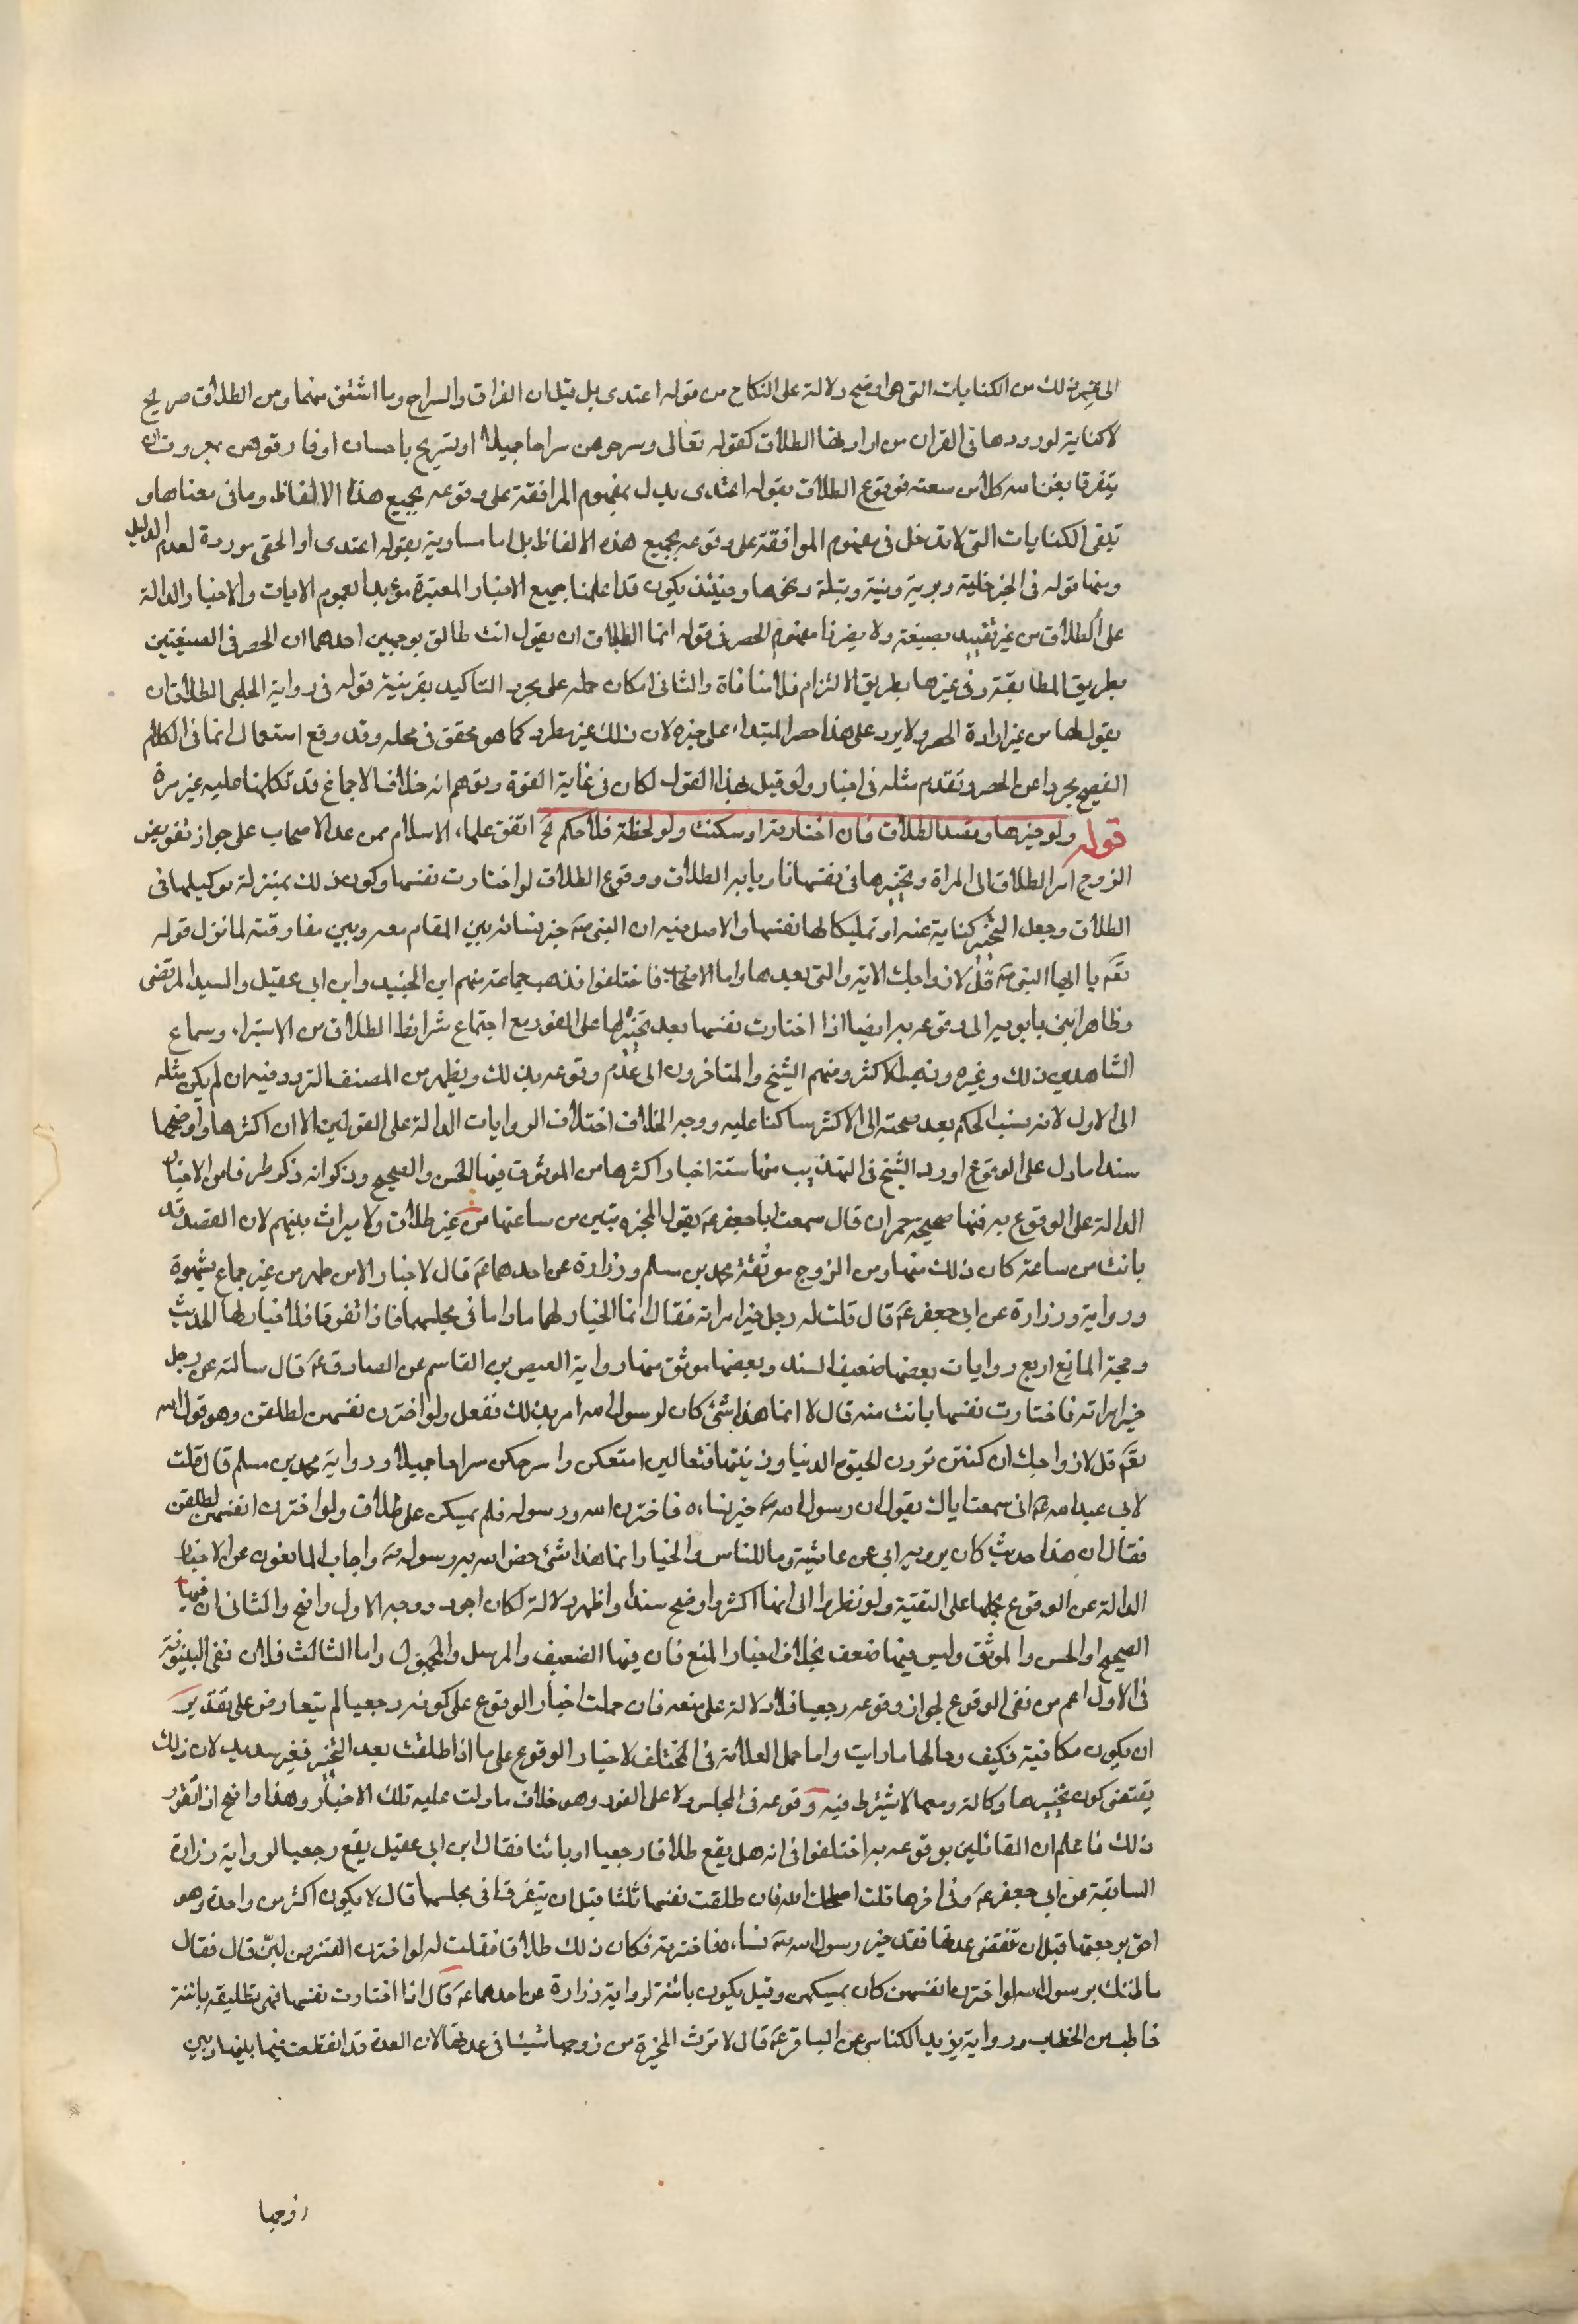 الى غير ذلك من الكنايات التى هى اوضح دلالة على النكاح من قوله اعتدى بل قيل ان الفراق والسراح وما اشتق منهما ومن الطلاق صريح
لا كناية لورودها فى القران مرادا بها الطلاق كقوله تعالى وسرحوهن سراحا جميلا او تسريح باحسان او فارقوهن بمعروف وان
يتفرقا يغن الله كلا من سعته فوقوع الطلاق بقوله اعتدى يدل بمفهوم الموافقة على وقوعه بجميع هذه الالفاظ وما فى معناها و
تبقى الكنايات التى لا تدخل فى مفهوم الموافقة على وقوعه بجميع هذه الالفاظ بل اما مساوية بقوله اعتدى او الحقى مردودة لعدم الدليل
ومنها قوله فى الخبر خلية وبرية وبتة وبتلة ونحوها وحينئذ يكون قد اعلمنا جميع الاخبار المعتبرة مؤيدا بعموم الايات والاخبار الدالة
على الطلاق من غير تقييد بصيغة ولا يضرنا مفهوم الحصر فى قوله انما الطلاق ان يقول انت طالق بوجهين احدهما ان الحصر فى الصيغتين
بطريق المطابقة وفى غيرها بطريق الالتزام فلا منافاة والثانى امكان حمله على مجرد التاكيد بقرينة قوله فى رواية الحلبى الطلاق ان
يقول لها من غير ارادة الحصر ولا يرد على هذا حصر المبتداء على خبره لان ذلك غير مطرد كما هو محقق فى محله وقد وقع استعمال انما فى الكلام
الفصيح مجردا عن الحصر وتقدم مثله فى اخبار ولو قيل بهذا القول لكان فى غاية القوة وتوهم انه خلاف الاجماع قد تكلمنا عليه غير مرة
قوله ولو خيرها وقصد الطلاق فان اختارته او سكتت ولو لحظة فلا حكم الخ اتفق علماء الاسلام ممن عدا الاصحاب على جواز تفويض
الزوج امر الطلاق الى المراة وتخييرها فى نفسها ناويا به الطلاق ووقوع الطلاق لو اختارت نفسها وكون ذلك بمنزلة توكيلها فى
الطلاق وجعل التخيير كناية عنه او تمليكا لها نفسها والاصل فيه ان النبى صه خير نسائه بين المقام معه وبين مفارقته لما نزل قوله
تعم يا ايها النبى صه قل لازواجك الاية والتى بعدها واما الاصحاب فاختلفوا فذهب جماعة منهم ابن الجنيد وابن ابى عقيل والسيد المرتضى
وظاهر ابنى بابويه الى وقوعه به ايضا اذا اختارت نفسها بعد تخييره لها على الفور مع اجتماع شرائط الطلاق من الاستبراء وسماع
الشاهدين ذلك وغيره وذهب الاكثر ومنهم الشيخ والمتاخرون الى عدم وقوعه بذلك ويظهر من المصنف التردد فيه ان لم يكن مثله
الى الاول لانه نسب الحكم بعد صحته الى الاكثر ساكنا عليه ووجه الخلاف اختلاف الروايات الدالة على القولين الا ان اكثرها واوضحها
سندا ما دل على الوقوع اورد الشيخ فى التهذيب منها ستة اخبار اكثرها من الموثوق فيها الحسن والصحيح وذكر انه ذكر طرفا من الاخبار
الدالة على الوقوع به فمنها صحيحة حمران قال سمعت ابا جعفر عه يقول المخيرة تبين من ساعتها من غير طلاق ولا ميراث بينهم لان العصمة قد
بانت من ساعة كان ذلك منها ومن الزوج موثقة محمد بن مسلم وزرارة عن احدهما عم قال لا خيار الا من طهر من غير جماع بشهوة
ورواية وزرارة عن ابى جعفر عه قال قلت له رجل خير امراته فقال انما الخيار لهما ما داما فى مجلسهما فاذا تفرقا فلا خيار لها الحديث
وحجة المانع اربع روايات بعضها ضعيف السند وبعضها موثق منها رواية العيص بن القاسم عن الصادق عه قال سالته عن رجل
خير امراته فاختارت نفسها بانت منه قال لا انما هذا شئ كان لرسول الله امر بذلك ففعل ولو اخترن نفسهن لطلقن وهو قول الله
تعم قل لازواجك ان كنتن تردن الحيوة الدنيا وزينتها فتعالين امتعكن واسرحكن سراحا جميلا ورواية محمد بن مسلم قال قلت
لابى عبد الله عه انى سمعت اباك يقول ان رسول الله صه خير نساءه فاخترن الله ورسوله فلم يمسكهن على طلاق ولو اخترن انفسهن لطلقن
فقال ان هذا حديث كان يرويه ابى عن عائشة وما للناس والخيار انما هذا شئ خص الله به رسوله صه واجاب المانعون عن الاخبار
الدالة عن الوقوع بحملها على التقية ولو نظروا الى انها اكثر واوضح سندا واظهر دلالة لكان اجود ووجه الاول واضح والثانى ان فيها
الصحيح والحسن والموثق وليس فيها ضعف بخلاف اخبار المنع فان فيها الضعيف والمرسل والمجهول واما الثالث فلان نفى البينونة
فى الاول اعم من نفى الوقوع لجواز وقوعه رجعيا فلا دلالة على منعه فان حملت اخبار الوقوع على كونه رجعيا لم يتعارض على تقدير
ان يكون مكافية فكيف وحالها ما رايت واما حمل العلامة فى المختلف لاخبار الوقوع على ما اذا طلقت بعد التخيير فغير سديد لان ذلك
يقتضى كون تخييرها وكالة ومهما لا يشترط فيه وقوعه فى المجلس ولا على الفور وهو خلاف ما دلت عليه تلك الاخبار وهذا واضح اذا تقرر
ذلك فاعلم ان القائلين بوقوعه به اختلفوا فى انه هل يقع طلاقا رجعيا او بائنا فقال ابن ابى عقيل يقع رجعيا لرواية زرارة
السابقة عن ابى جعفر عه وفى اخرها قلت اصلحك الله فان طلقت نفسها ثلثا قبل ان يتفرقا فى مجلسهما قال لا يكون اكثر من واحدة وهو
احق برجعتها قبل ان تنقضى عدتها فقد خير رسول الله صه نساءه فاخترنه فكان ذلك طلاقا فقلت له لو اخترن انفسهن لبن قال فقال
ما ظنك برسول الله لو اخترن انفسهن كان يمسكهن وقيل يكون بائنة لرواية زرارة عن احدهما عه قال اذا اختارت نفسها فهى تطليقة بائنة
خاطب من الخطاب ورواية يزيد الكناسى عن الباقر عه قال لا ترث المخيرة من زوجها شيئا فى عدتها لان العدة قد انقطعت فيما بينها وبين
زوجها